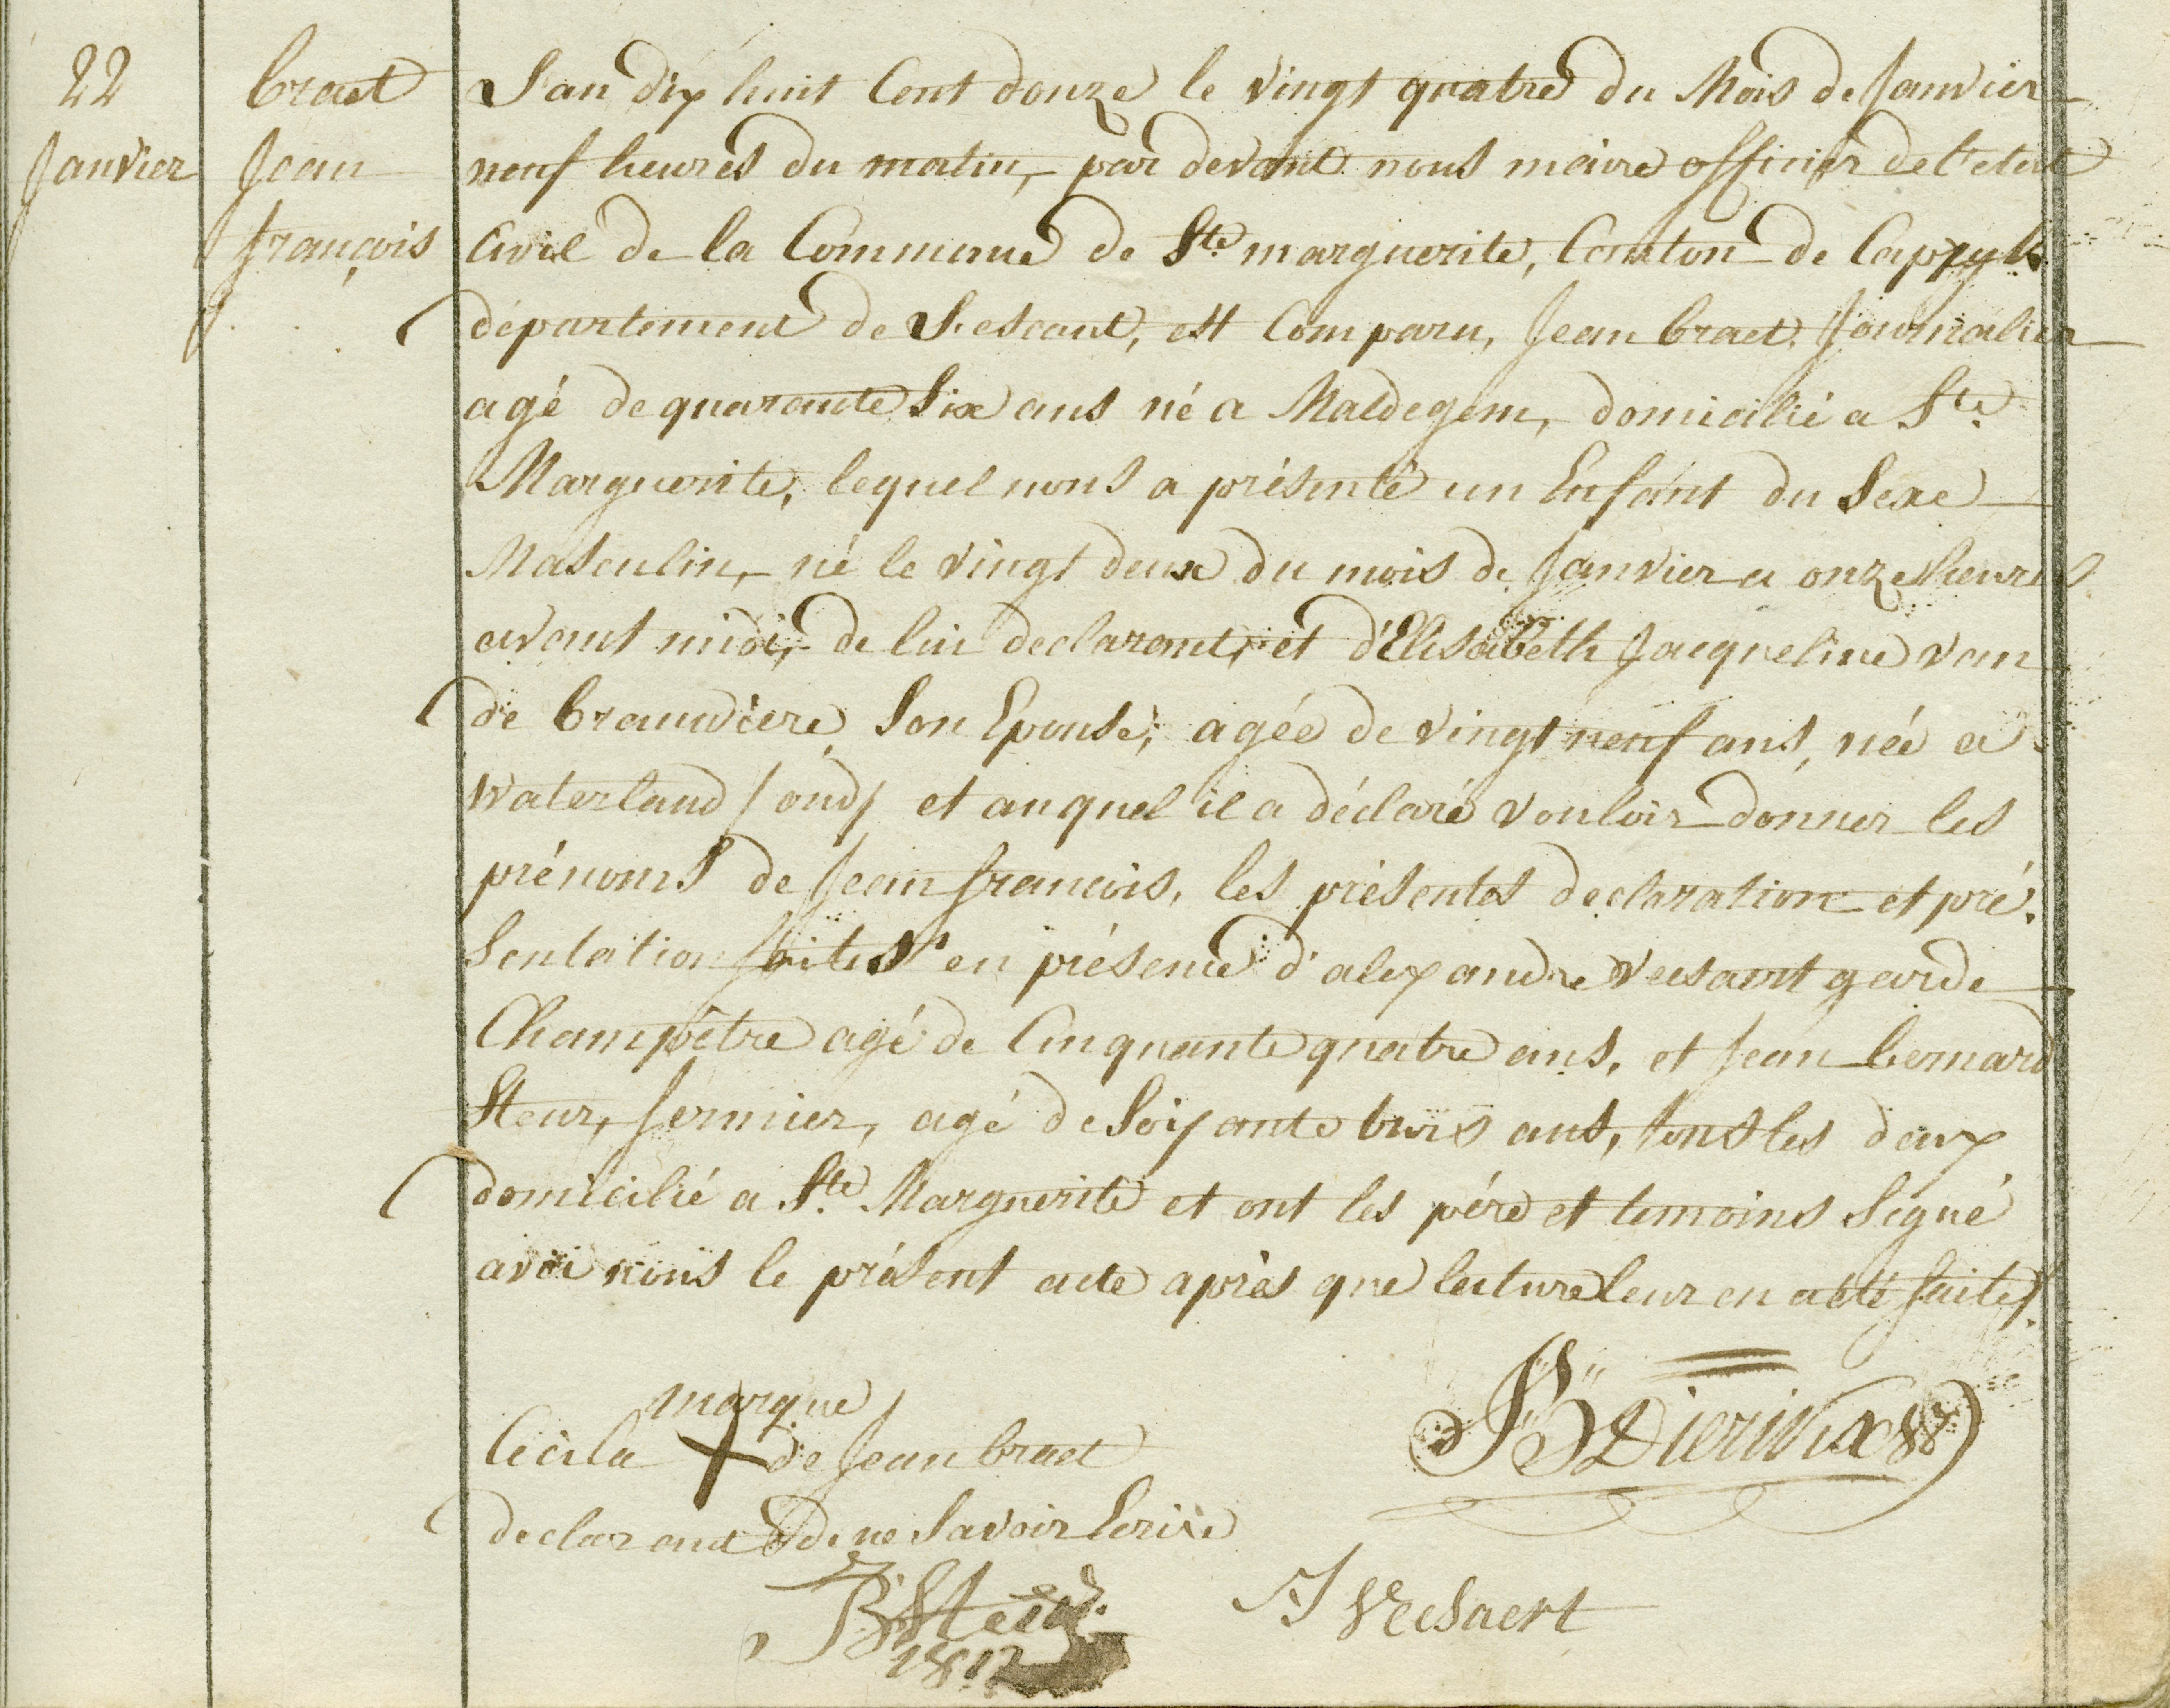 22
Janvier
braet
Jean
françois
L'an dix huit Cent douze le vingt quatre du Mois de Janvier
neuf heures du matin, par devant nous maire officier de l'etat
Civil de la Commune de Ste marguerite, Canton de Capryk
département de L'escaut, est Comparu, Jean braet, Journalier
agé de quarante Six ans né a Maldegem, domicilié a Ste
Marguerite, lequel nous a présenté un Enfant du Sexe
Masculin, né le vingt deux du mois de Janvier a onze heures
avant midi, de lui declarant, et d'Elisabeth Jacqueline van
de brauwiere Son Epouse, agée de vingt neuf ans, née a
Waterland /oud/ et auquel il a déclaré vouloir donner les
prénoms de Jean francois, les présentes declaration et pré
sentation faites en présence d'alexandre veesaert garde
Champêtre agé de Cinquante quatre ans, et Jean bernard
Steur, fermier, agé de Soixante trois ans, tous les deux
domicilié a Ste Marguerite et ont les père et temoins Signé
avec nous le présent acte après que lecture leur en a été faite/.
marque
Ceci la + de Jean braet
declarant de ne Savoir Ecrire
JB Steur
1812
A Veesaert